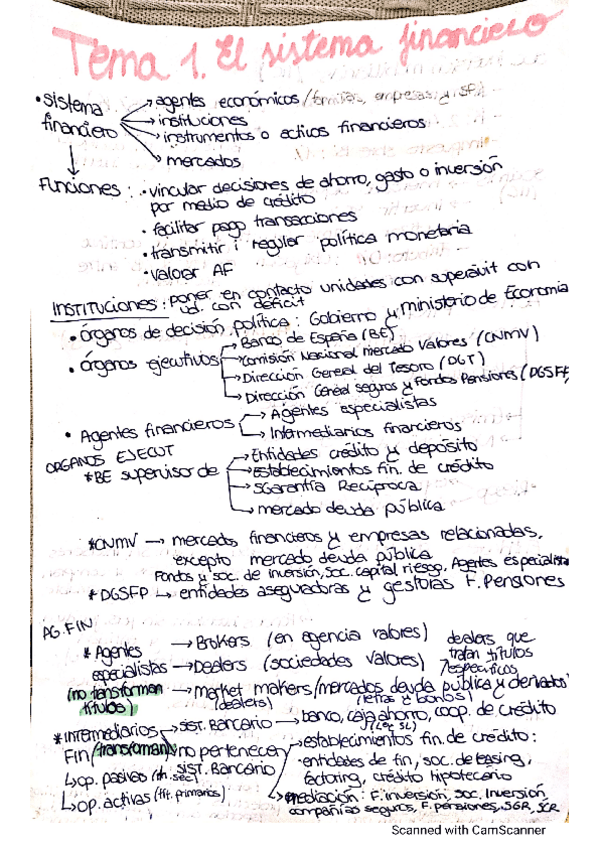 Tema 1. El sistema financiero
• Sistema financiero → agentes económicos (familias, empresas y SF)
→ instituciones
→ instrumentos o activos financieros
→ mercados
Funciones: • vincular decisiones de ahorro, gasto o inversión
por medio de crédito
• facilitar pago transacciones
• transmitir i regular política monetaria
• valorar AF
INSTITUCIONES: poner en contacto unidades con superávit con
ud. con déficit
• órganos de decisión política: Gobierno y ministerio de Economía
• órganos ejecutivos → Banco de España (BE)
→ Comisión Nacional Mercado Valores (CNMV)
→ Dirección General del Tesoro (DGT)
→ Dirección General seguros y Fondos Pensiones (DGSFP,
• Agentes financieros → Agentes especialistas
→ Intermediarios financieros
ORGANOS EJECUT
* BE supervisor de → Entidades crédito y depósito
→ establecimientos fin. de crédito
→ SGarantía Recíproca
→ mercado deuda pública
* CNMV → mercados financieros y empresas relacionadas,
excepto mercado deuda pública
Fondos y soc. de inversión, soc. capital riesgo, Agentes especialista
* DGSFP ↳ entidades aseguradoras y gestoras F. Pensiones
AG. FIN
* Agentes especialistas → Brokers (en agencia valores)
→ Dealers (sociedades valores)
dealers que
tratan títulos
específicos
(no transforman títulos) → market makers/mercados deuda pública y derivados
(dealers) (letras y bonos)
* Intermediarios Fin (transforman) → SIST. Bancario → banco, caja ahorro, coop. de crédito
no pertenecen SIST. Bancario → establecimientos fin. de crédito:
entidades de fin, soc. de leasing,
factoring, crédito hipotecario
↳ op. pasivas (tít. sec)
↳ op. activas (tít. primarios)
→ mediación: F. inversión, soc. Inversión,
compañías seguros, F. pensiones, SGR, SCR
Scanned with CamScanner